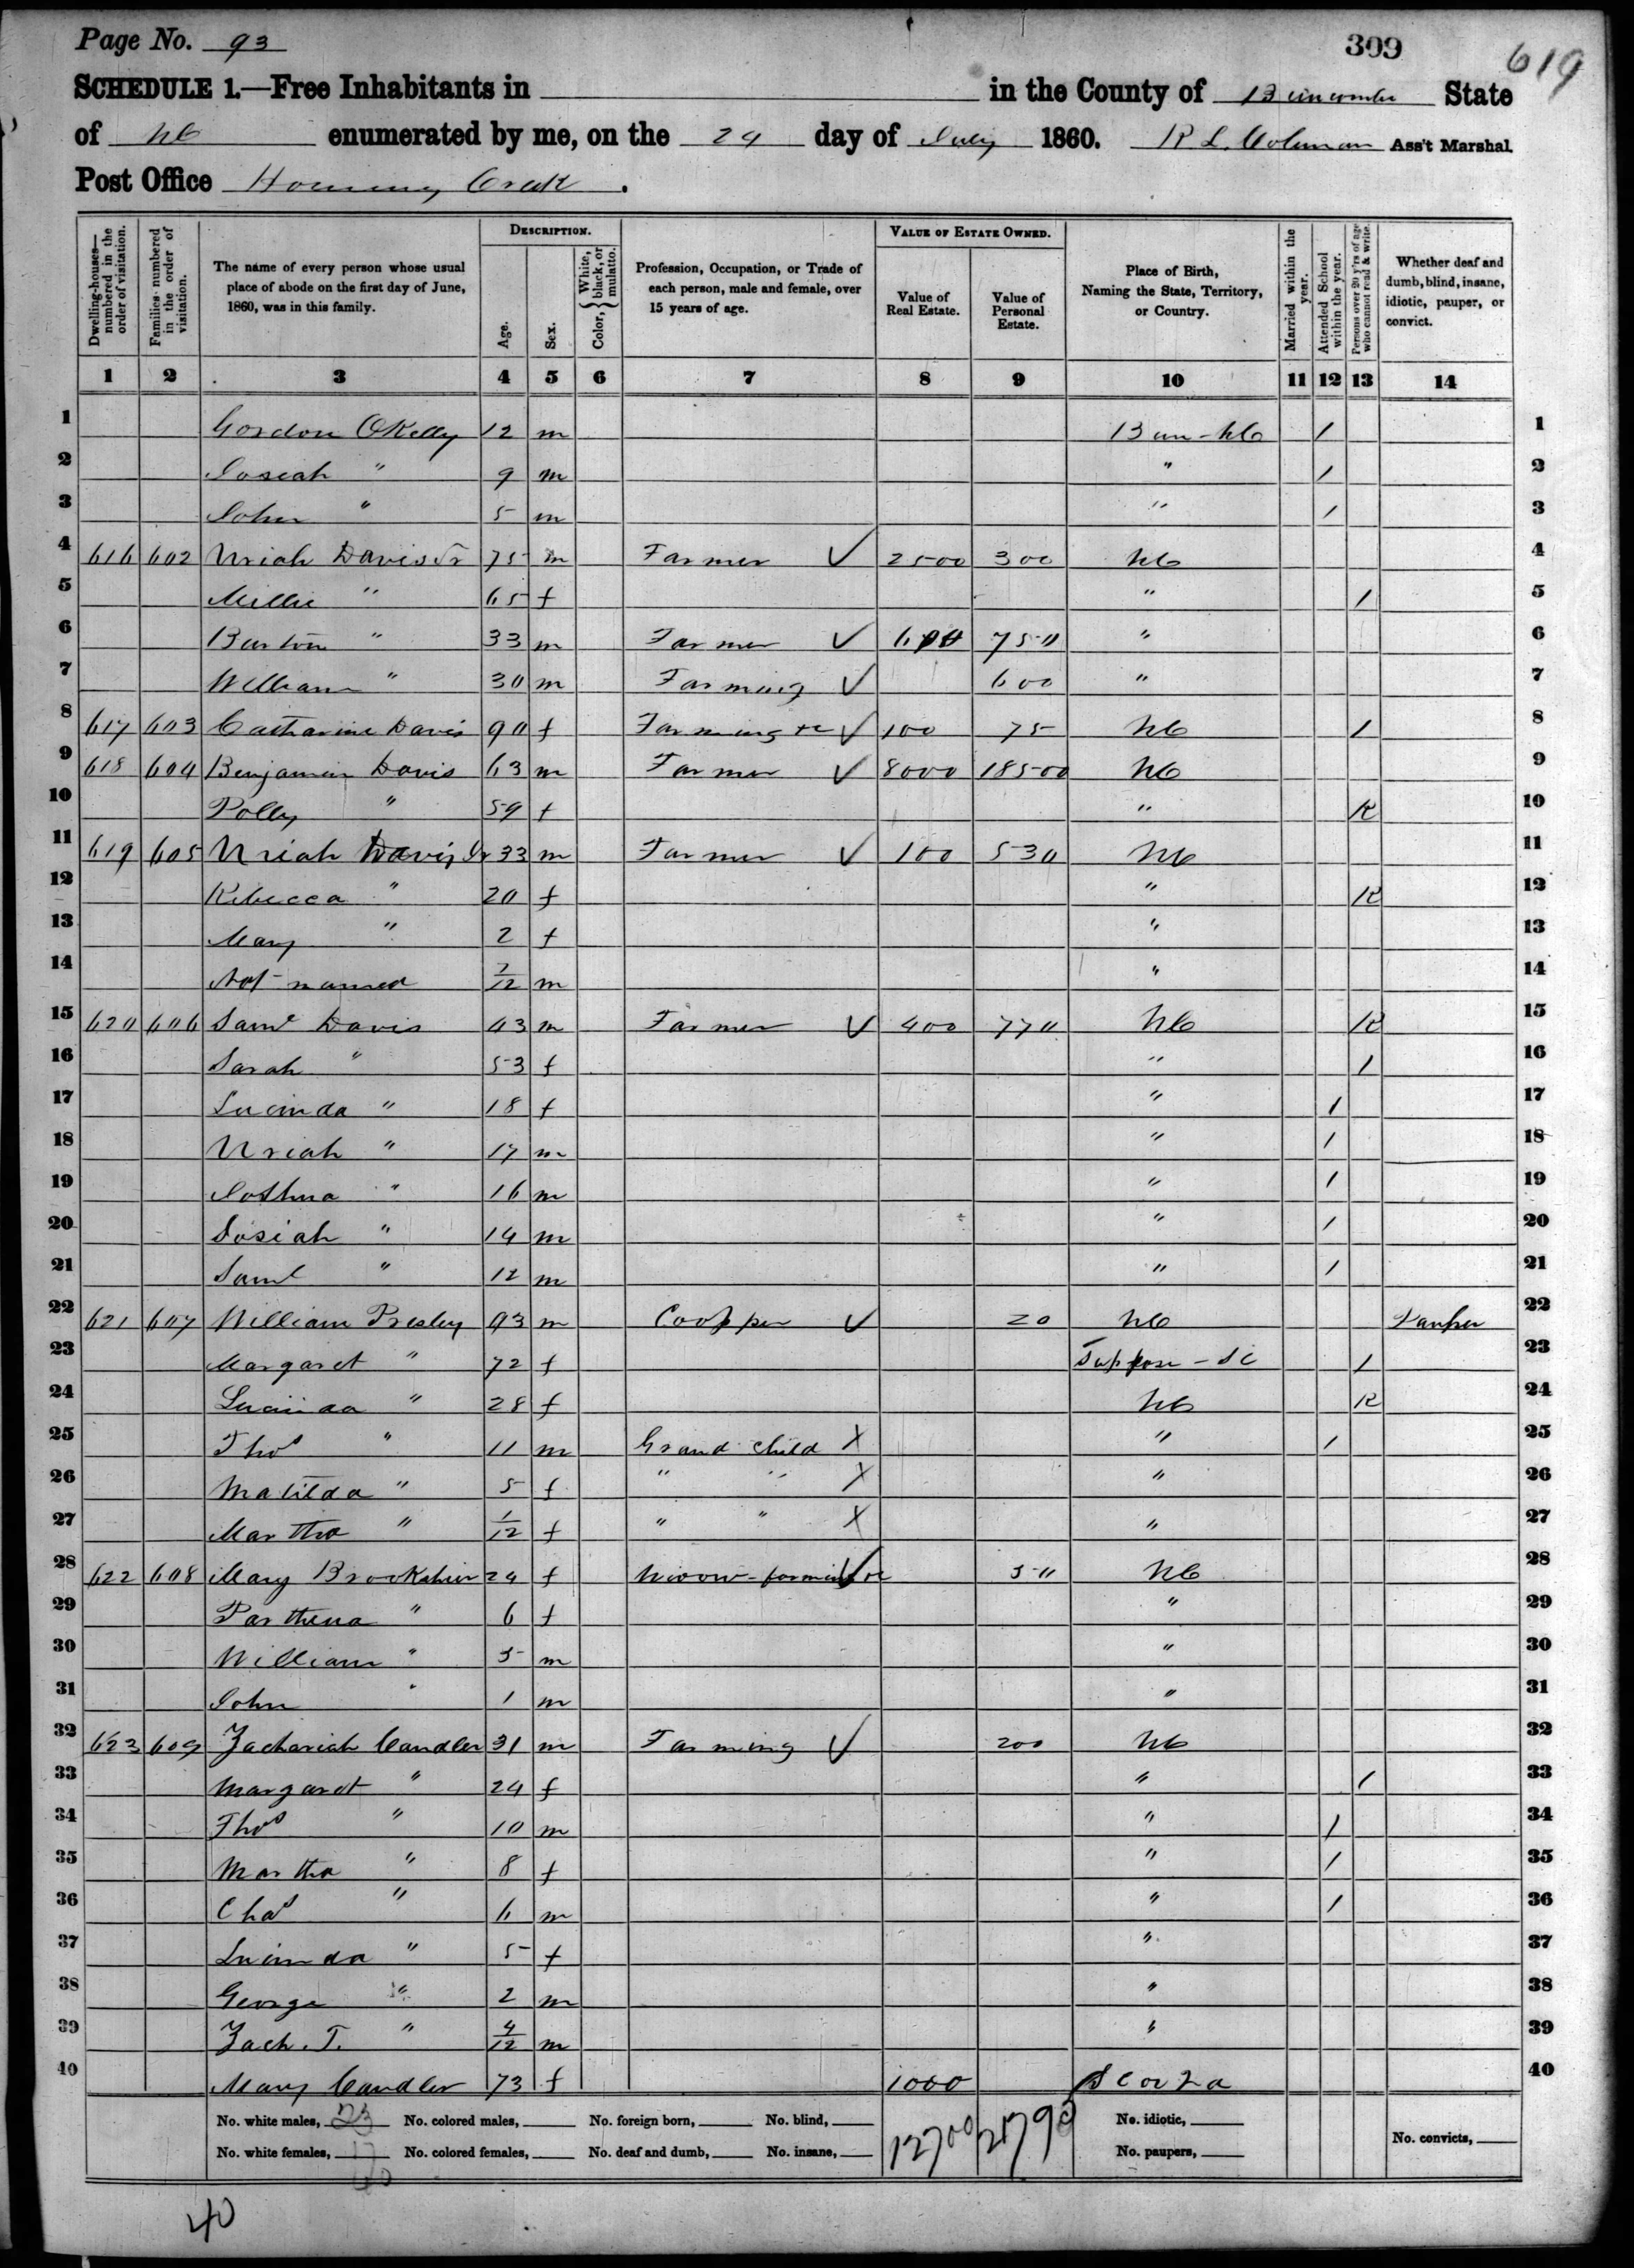 Page No. 93
309
619
SCHEDULE 1.—Free Inhabitants in in the County of Buncombe State
of NC enumerated by me, on the 24 day of July 1860. R L. Coleman Ass't Marshal.
Post Office Hominy Creek.
Dwelling-houses—numbered in the order of visitation.
Families numbered in the order of visitation.
The name of every person whose usual place of abode on the first day of June, 1860, was in this family.
DESCRIPTION.
Age.
Sex.
Color, {White, black, or mulatto.
Profession, Occupation, or Trade of each person, male and female, over 15 years of age.
VALUE OF ESTATE OWNED.
Value of Real Estate.
Value of Personal Estate.
Place of Birth, Naming the State, Territory, or Country.
Married within the year.
Attended School within the year.
Persons over 20 y'rs of age who cannot read & write.
Whether deaf and dumb, blind, insane, idiotic, pauper, or convict.
1 2 3 4 5 6 7 8 9 10 11 12 13 14
1 Gordon OKelly 12 m Bun-NC / 1
2 Josiah " 9 m " / 2
3 John " 5 m " / 3
4 616 602 Uriah Davis Sr 75 m Farmer ✓ 2500 300 NC 4
5 Millie " 65 f " / 5
6 Burton " 33 m Farmer ✓ 600 750 " 6
7 William " 30 m Farming ✓ 600 " 7
8 617 603 Catharine Davis 90 f Farming &c ✓ 100 75 NC / 8
9 618 604 Benjamin Davis 63 m Farmer ✓ 8000 18500 NC 9
10 Polly " 59 f " R 10
11 619 605 Uriah Davis Jr 33 m Farmer ✓ 100 530 NC 11
12 Rebecca " 20 f " R 12
13 Mary " 2 f " 13
14 Not named 7/12 m " 14
15 620 606 Saml Davis 43 m Farmer ✓ 400 770 NC R 15
16 Sarah " 53 f " / 16
17 Lucinda " 18 f " / 17
18 Uriah " 17 m " / 18
19 Joshua " 16 m " / 19
20 Josiah " 14 m " / 20
21 Saml " 12 m " / 21
22 621 607 William Presley 93 m Coopper ✓ 20 NC Pauper 22
23 Margaret " 72 f Suppose - SC / 23
24 Lucinda " 28 f NC R 24
25 Thos " 11 m Grand child X " / 25
26 Matilda " 5 f " " X " 26
27 Martha " 1/12 f " " X " 27
28 622 608 Mary Brookshire 24 f Widow-farming &c ✓ 50 NC 28
29 Parthena " 6 f " 29
30 William " 5 m " 30
31 John " 1 m " 31
32 623 609 Zachariah Candler 31 m Farming ✓ 200 NC 32
33 Margaret " 24 f " / 33
34 Thos " 10 m " / 34
35 Martha " 8 f " / 35
36 Chas " 6 m " / 36
37 Lucinda " 5 f " 37
38 George " 2 m " 38
39 Zach. T. " 4/12 m " 39
40 Mary Candler 73 f 1000 S Car 40
No. white males, 23 No. colored males, No. foreign born, No. blind, 12700 21790 No. idiotic,
No. white females, 17 No. colored females, No. deaf and dumb, No. insane, No. paupers, No. convicts,
40
40